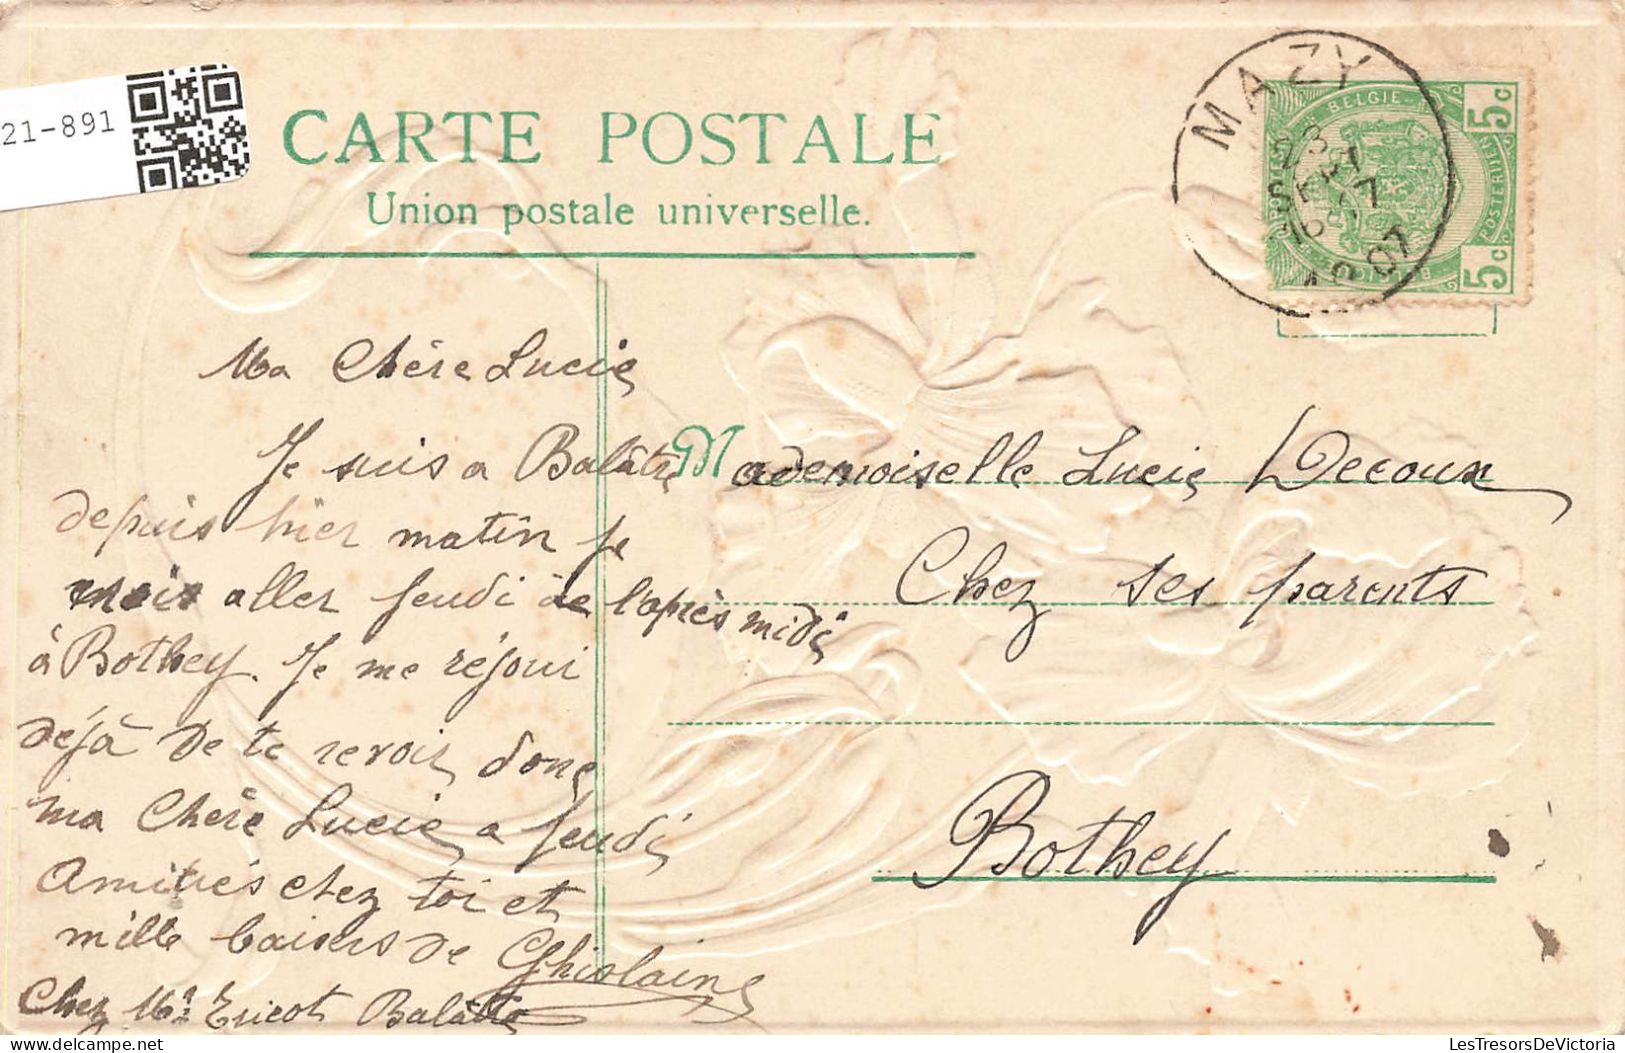 21-891
CARTE POSTALE
Union postale universelle.
MAZY
23
SEPT
1907
BELGIE
POSTERIJEN
5c
5c
Ma Chère Lucie
Je suis a Balâtre
depuis hier matin je
vais aller jeudi de l'après midi
à Bothey. Je me réjoui
déjà de te revoir donc
ma Chère Lucie a jeudi
Amitiés chez toi et
mille baisers de Ghislaine
Chez Mr Balâtre
Mademoiselle Lucie Decoux
Chez ses parents
Bothey
LesTresorsDeVictoria